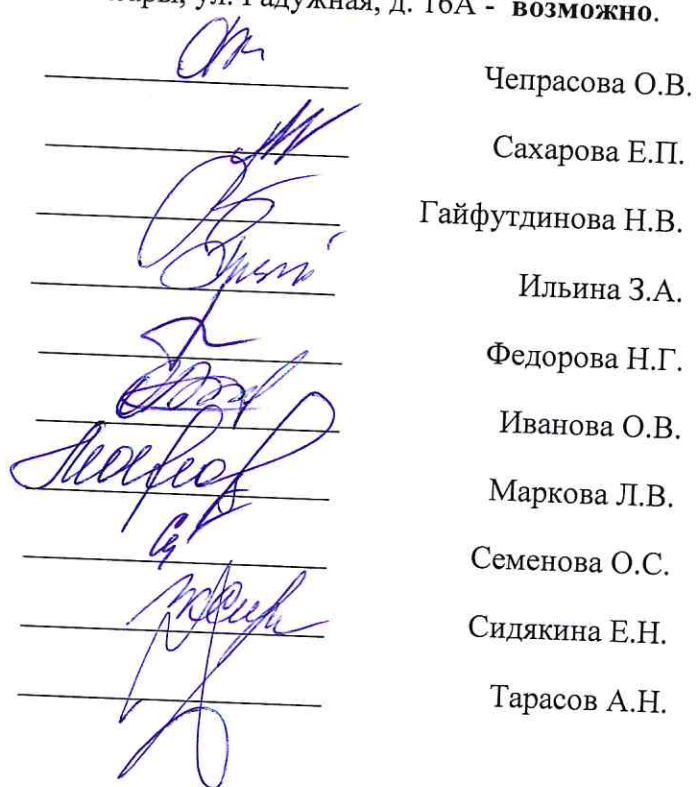 ул. Радужная, д. 16А - возможно.
Чепрасова О.В.
Сахарова Е.П.
Гайфутдинова Н.В.
Ильина З.А.
Федорова Н.Г.
Иванова О.В.
Маркова Л.В.
Семенова О.С.
Сидякина Е.Н.
Тарасов А.Н.